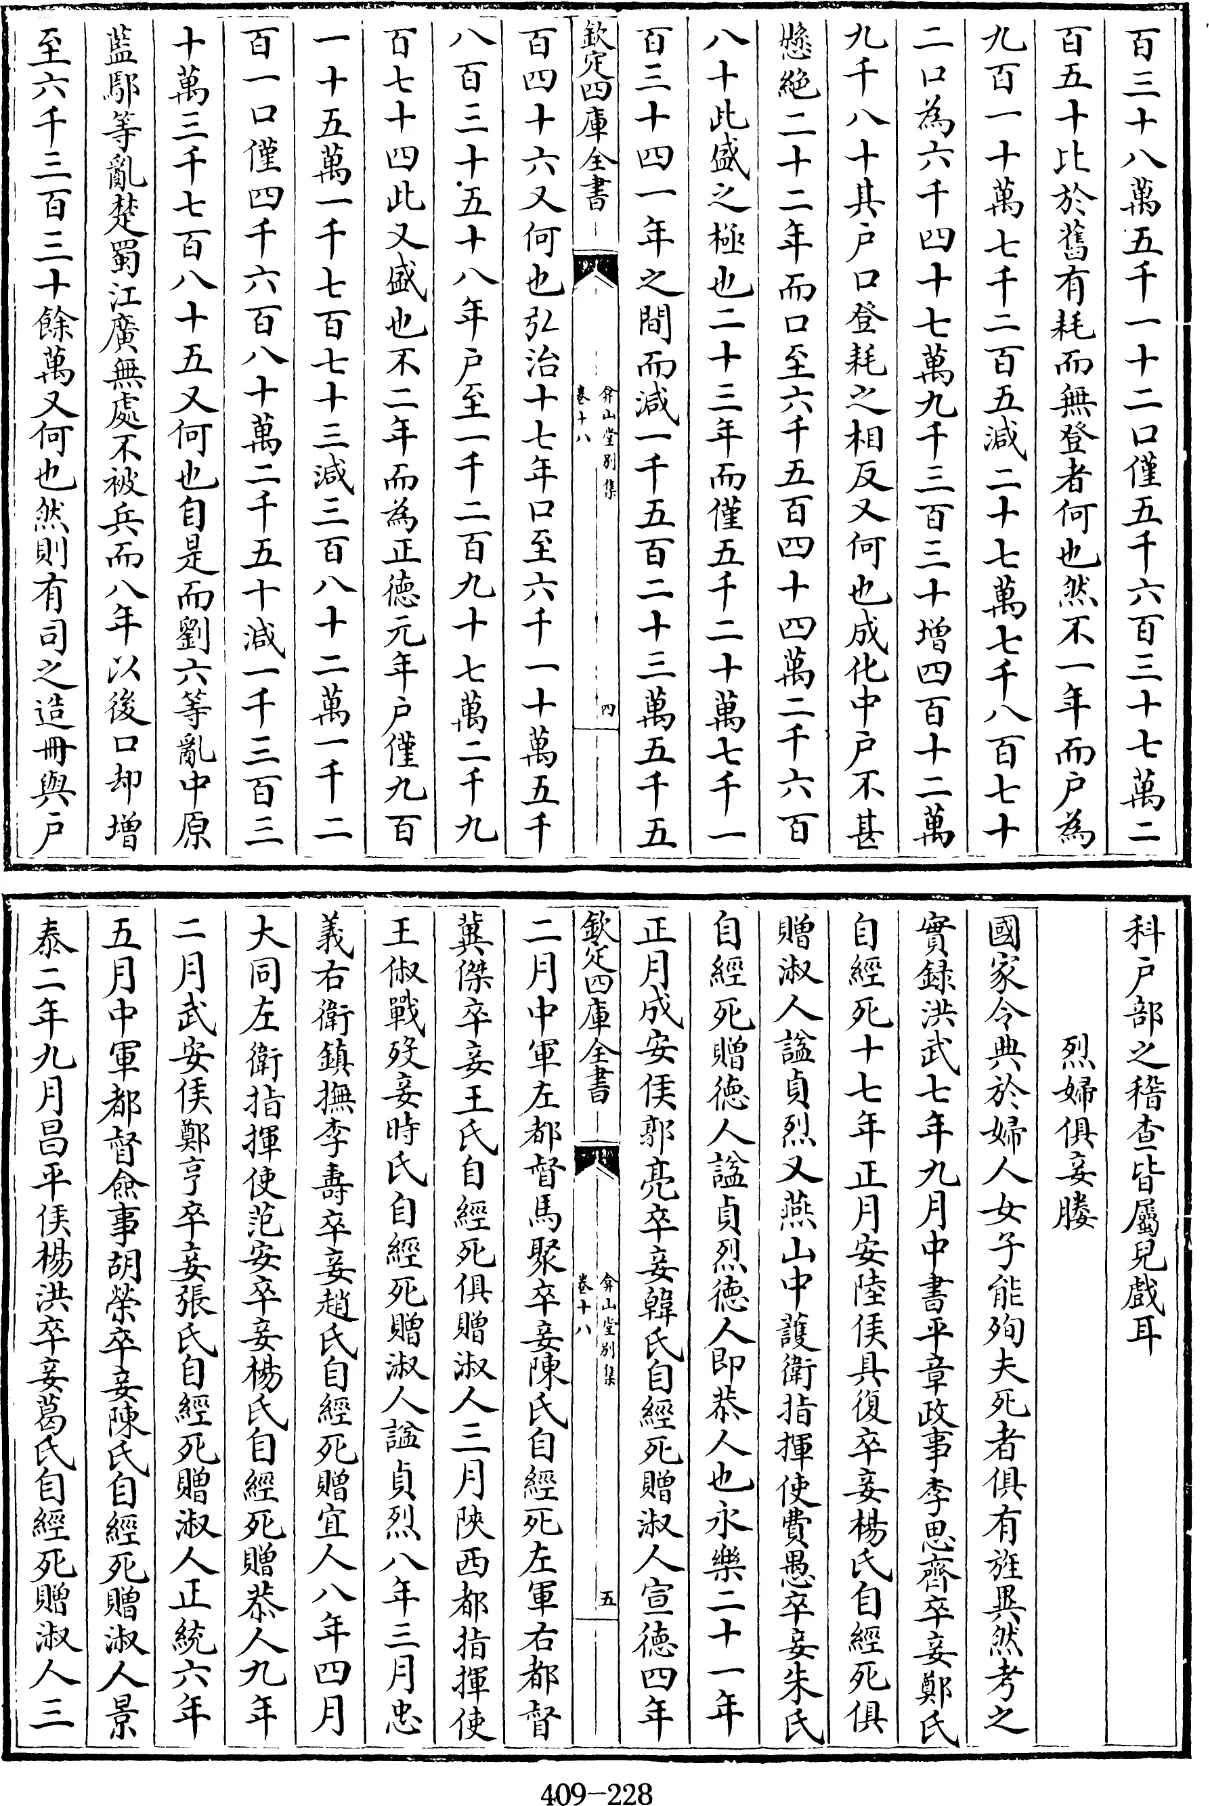 百三十八萬五千一十二口僅五千六百三十七萬二
百五十比於舊有耗而無登者何也然不一年而户為
九百一十萬七千二百五減二十七萬七千八百七十
二口為六千四十七萬九千三百三十增四百十二萬
九千八十其户口登耗之相反又何也成化中户不甚
懸絶二十二年而口至六千五百四十四萬二千六百
八十此盛之極也二十三年而僅五千二十萬七千一
百三十四一年之間而減一千五百二十三萬五千五
欽定四庫全書
弇山堂别集
卷十八
四
百四十六又何也弘治十七年口至六千一十萬五千
八百三十五十八年户至一千二百九十七萬二千九
百七十四此又盛也不二年而為正德元年户僅九百
一十五萬一千七百七十三減三百八十二萬一千二
百一口僅四千六百八十萬二千五十減一千三百三
十萬三千七百八十五又何也自是而劉六等亂中原
藍鄢等亂楚蜀江廣無處不被兵而八年以後口却增
至六千三百三十餘萬又何也然則有司之造冊與户
科户部之稽查皆屬兒戲耳
烈婦俱妾媵
國家令典於婦人女子能殉夫死者俱有旌異然考之
實録洪武七年九月中書平章政事李思齊卒妾鄭氏
自經死十七年正月安陸侯具復卒妾楊氏自經死俱
贈淑人諡貞烈又燕山中護衛指揮使費愚卒妾朱氏
自經死贈德人諡貞烈德人即恭人也永樂二十一年
正月成安侯郭亮卒妾韓氏自經死贈淑人宣德四年
欽定四庫全書
弇山堂别集
卷十八
五
二月中軍左都督馬聚卒妾陳氏自經死左軍右都督
冀傑卒妾王氏自經死俱贈淑人三月陜西都指揮使
王俶戰歿妾時氏自經死贈淑人諡貞烈八年三月忠
義右衛鎮撫李壽卒妾趙氏自經死贈宜人八年四月
大同左衛指揮使范安卒妾楊氏自經死贈恭人九年
二月武安侯鄭亨卒妾張氏自經死贈淑人正統六年
五月中軍都督僉事胡榮卒妾陳氏自經死贈淑人景
泰二年九月昌平侯楊洪卒妾葛氏自經死贈淑人三
409-228